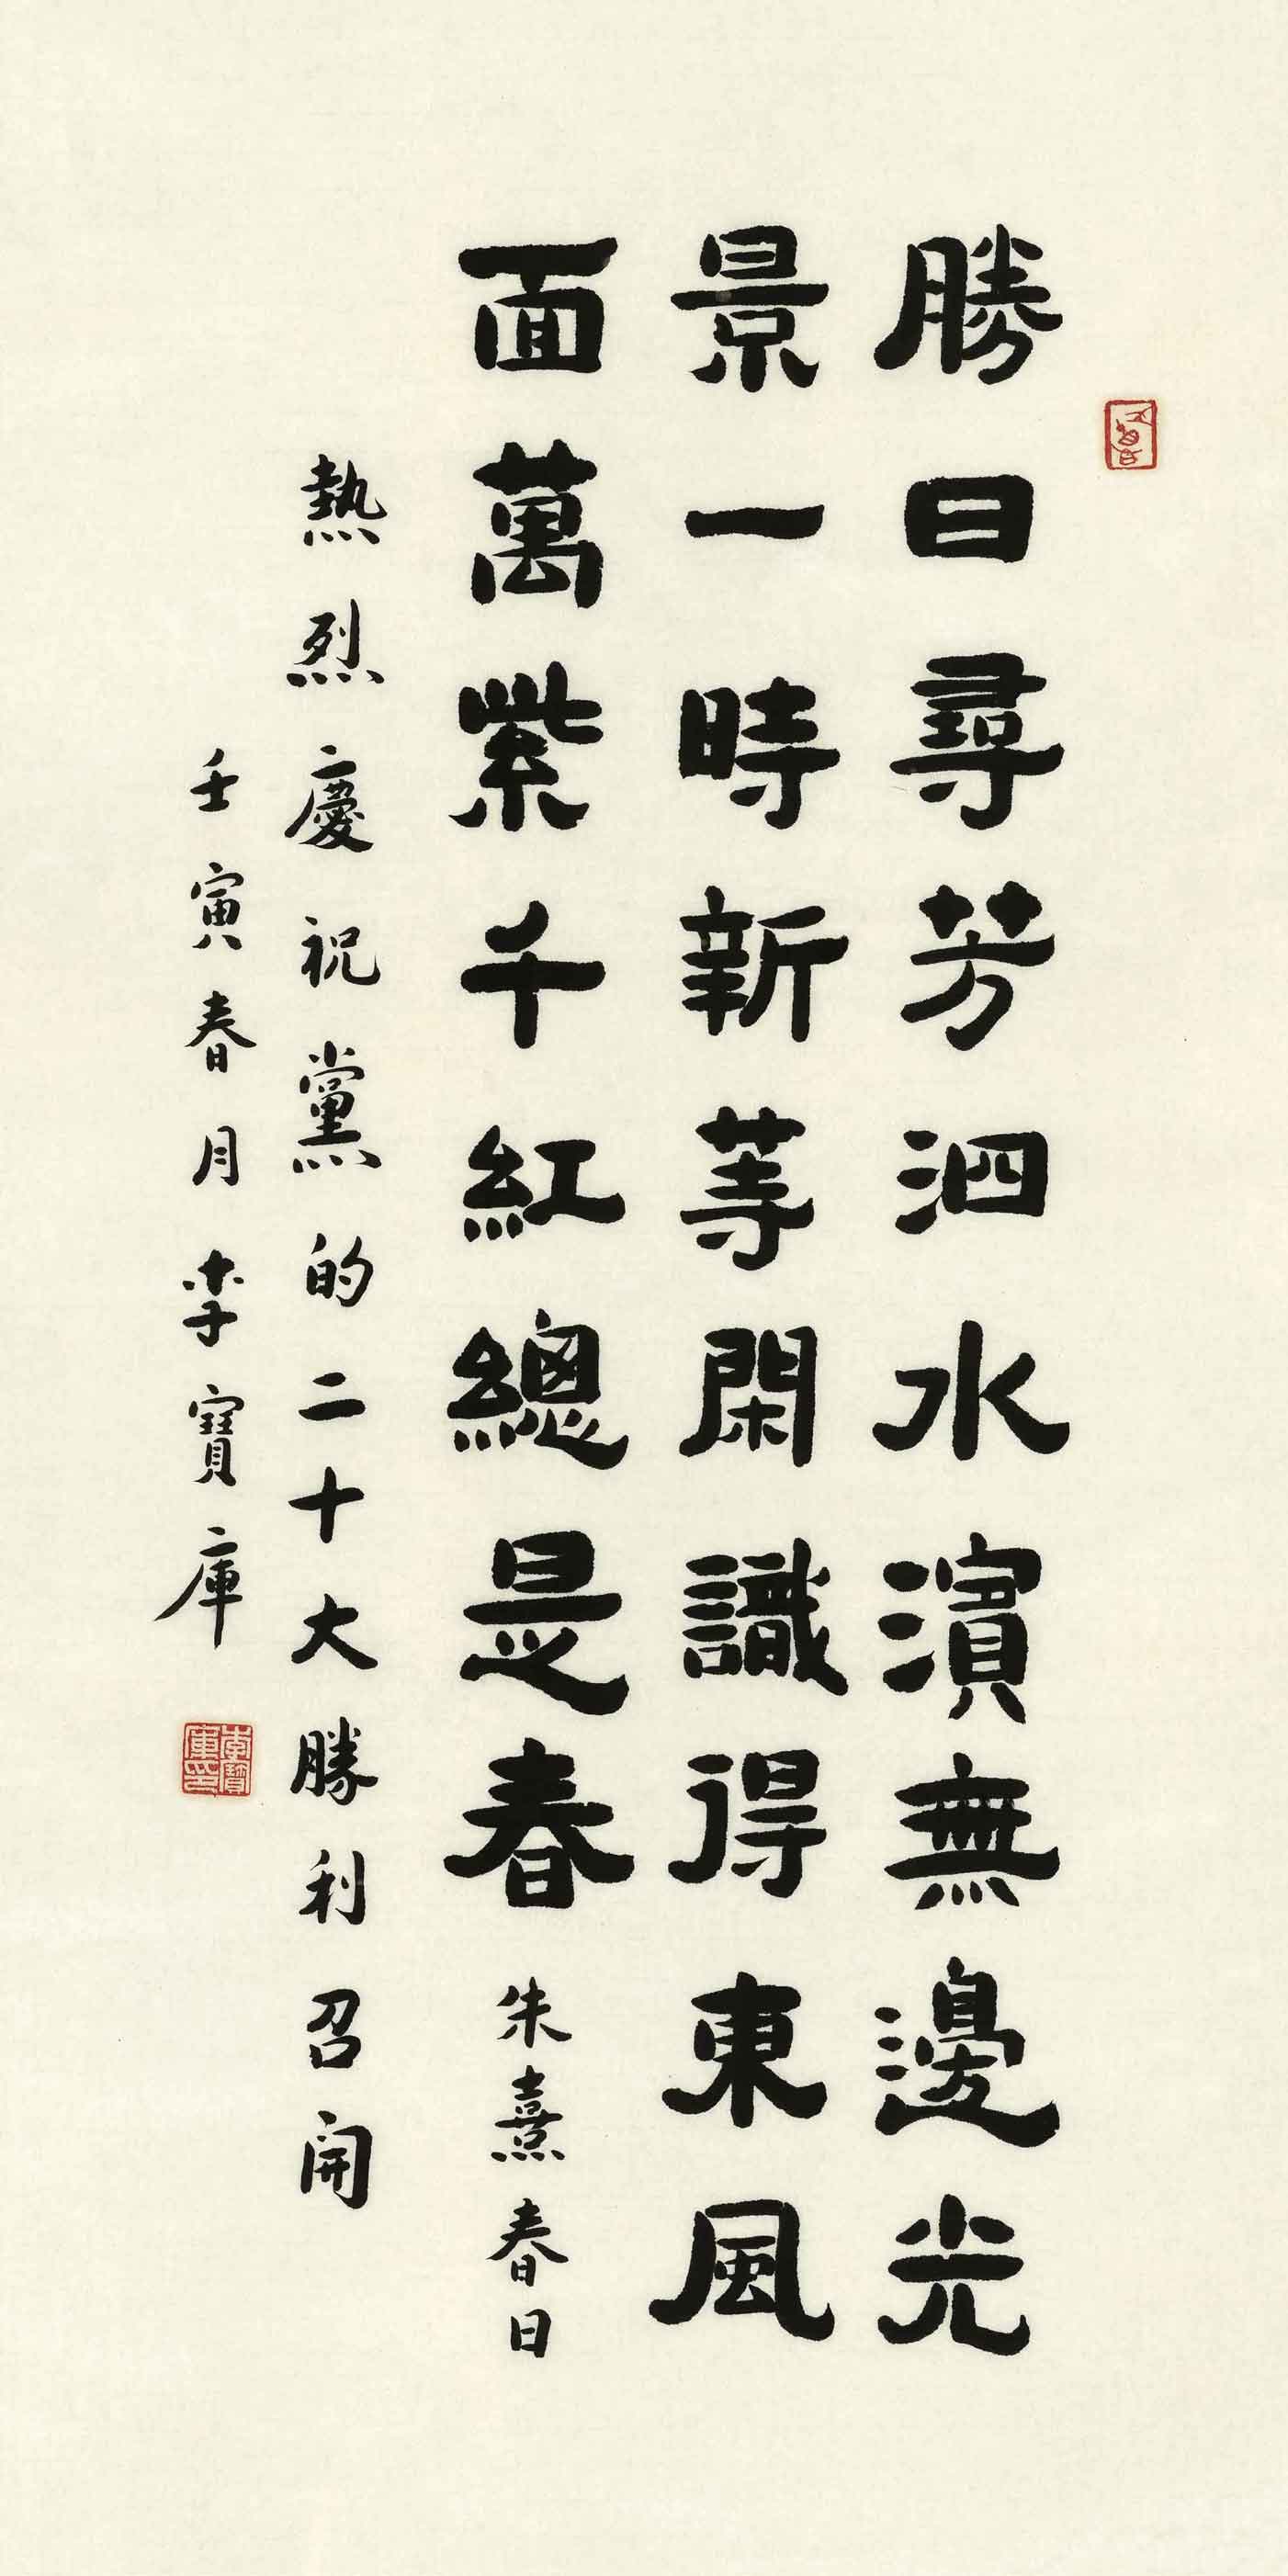 勝日尋芳泗水濱無邊光
景一時新等閑識得東風
面萬紫千紅總是春 朱熹春日
熱烈慶祝黨的二十大勝利召開
壬寅春月李寶庫
李寶庫印